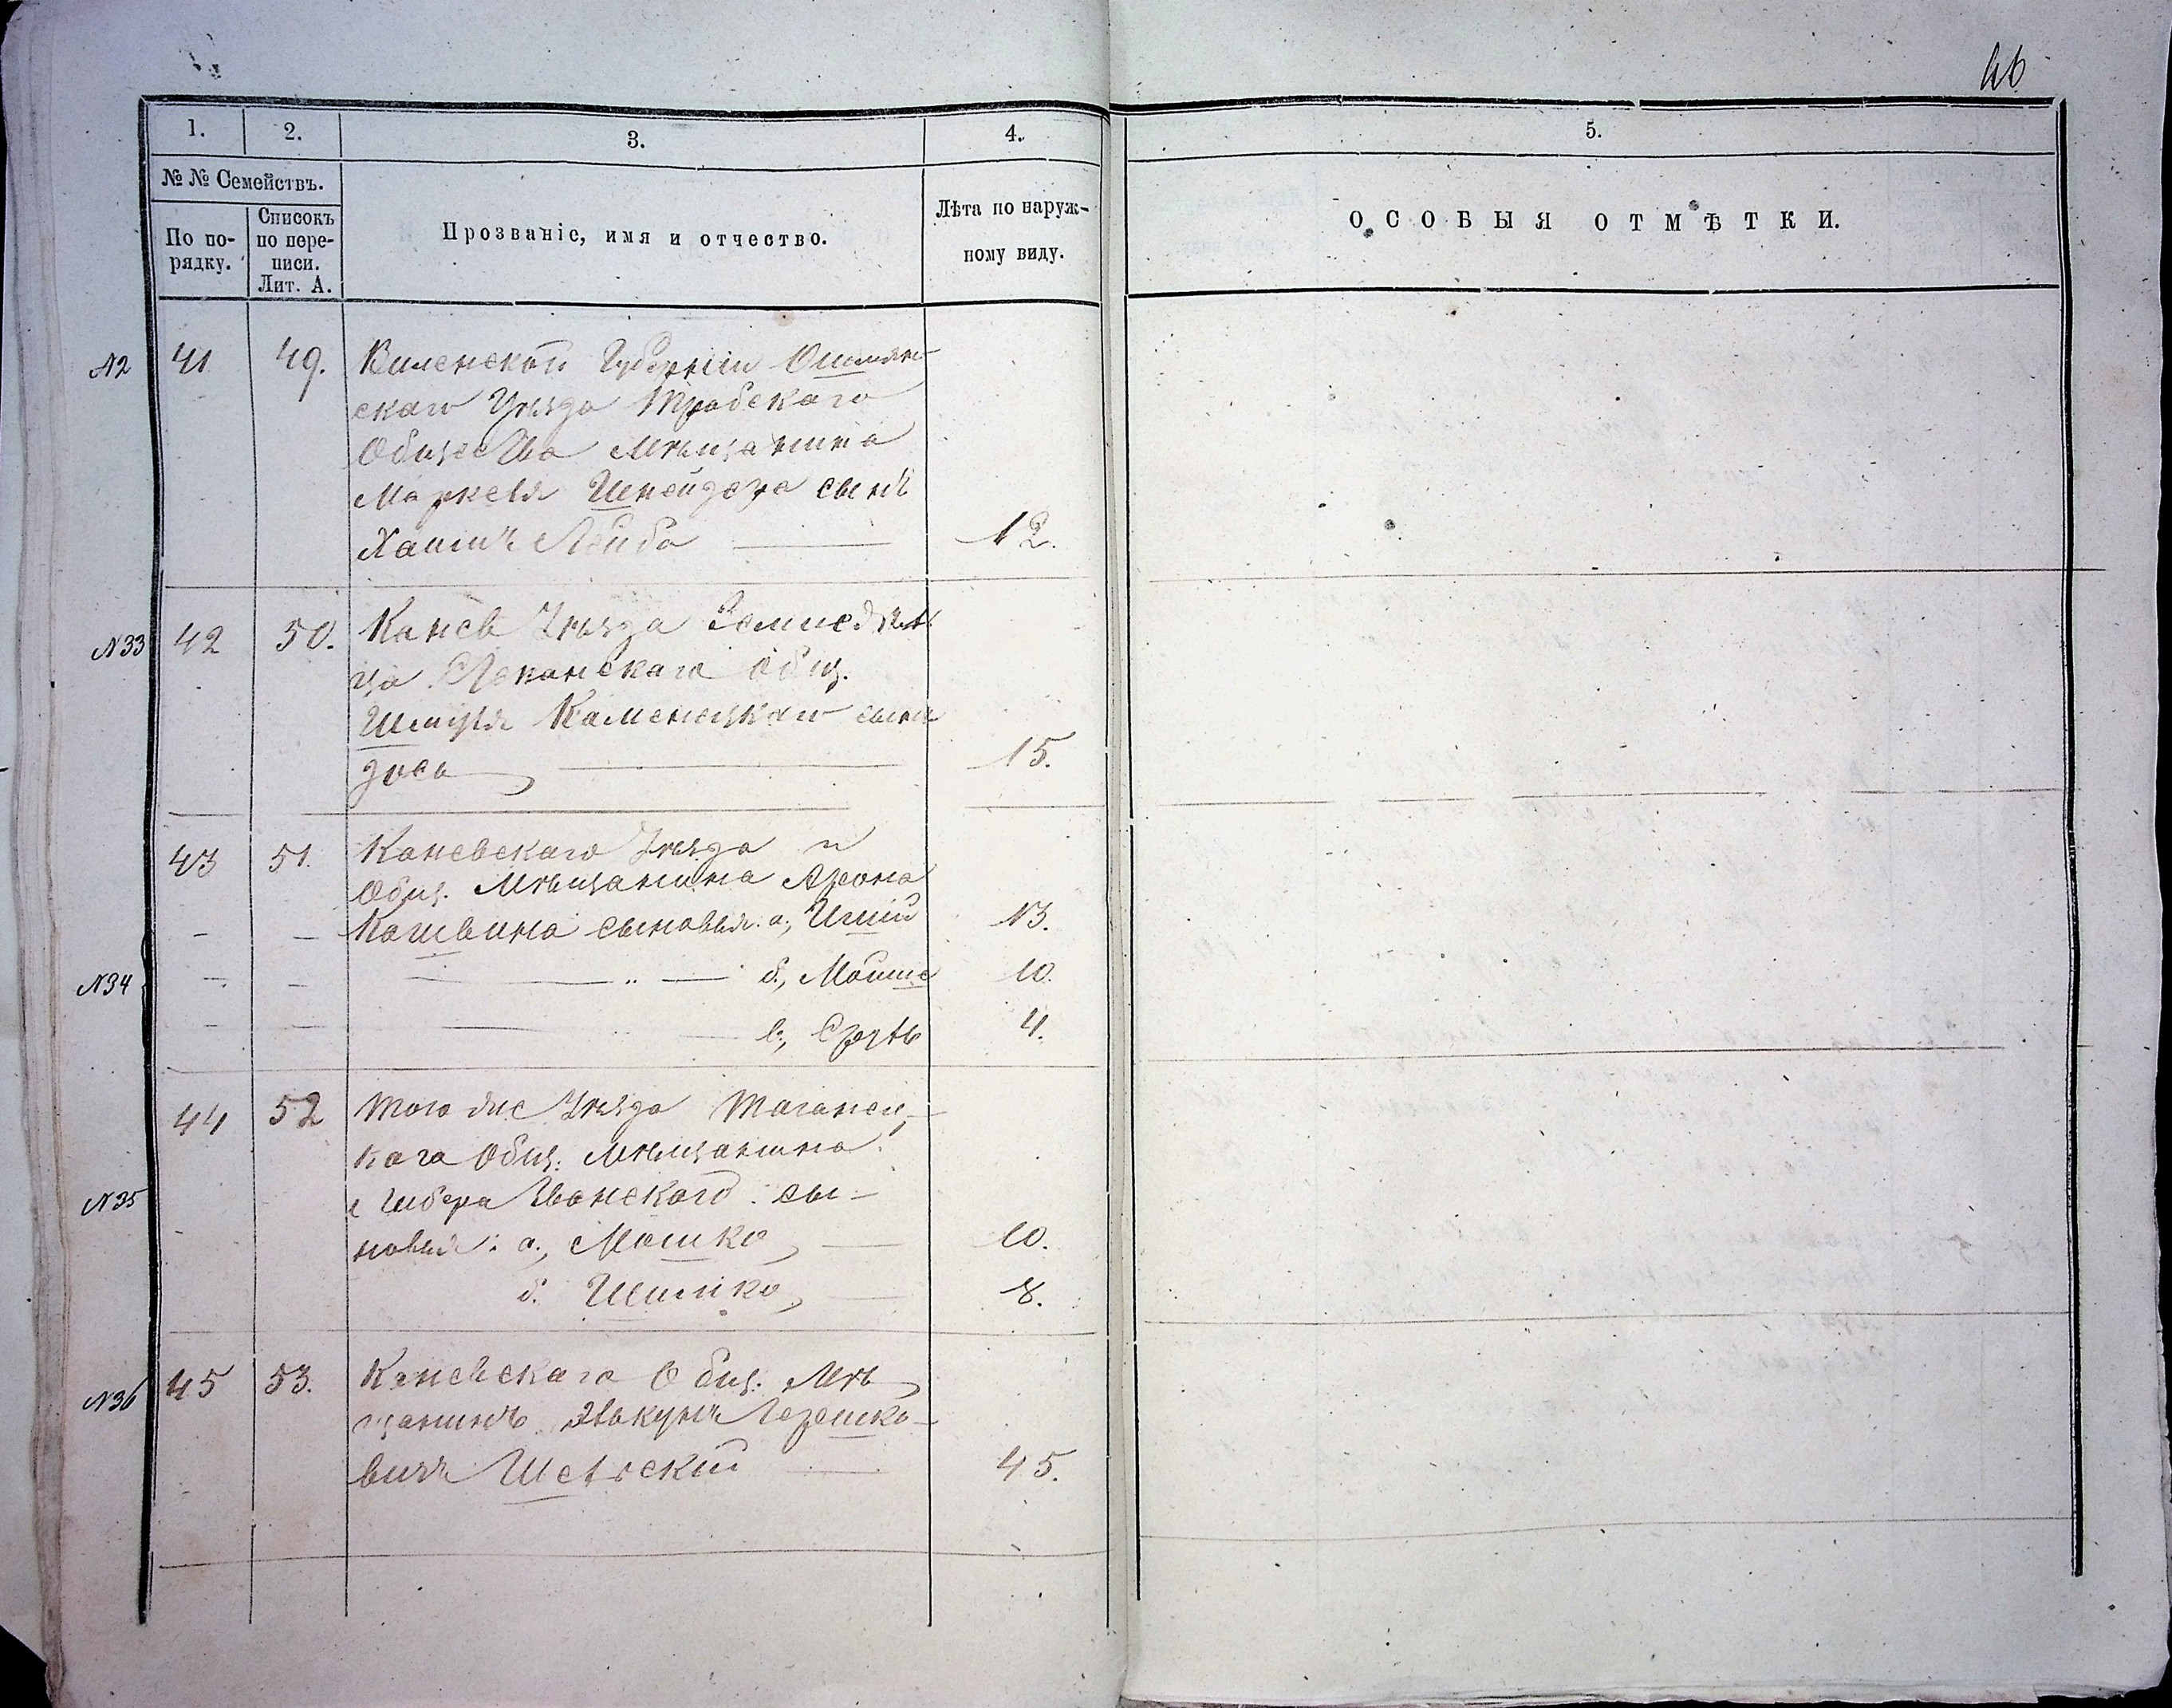 46
1.
2.
3.
4.
5.
№ № Семействъ.
По по-
рядку.
Списокъ
по пере-
писи.
Лит. А.
Прозваніе, имя и отчество.
Лѣта по наруж-
ному виду.
ОСОБЫЯ ОТМѢТКИ.
41 49. Виленской Губерніи Ошмян-
скаго Уѣзда Трабскаго
Общества Мѣщанина
Шнейдера сынъ
Хаимъ Лейба 12.
N33 42 50. Канев Уѣзда Земледѣль
ца общ.
Шмуля Каменецкаго сынъ
15.
43 51. Каневскаго Уѣзда и
Общ. Мѣщанина Арона
Кашвина сыновья: а, 13.
N34 б, Мошше 10.
в, 4.
44 52 Того же Уѣзда Таганец-
каго Общ. Мѣщанина
N35 сы-
новья: а, Мошко 10.
б. Шимко 8.
N36 45 53. Каневскаго Общ. Мѣ
щанинъ Гершко-
вичъ 45.